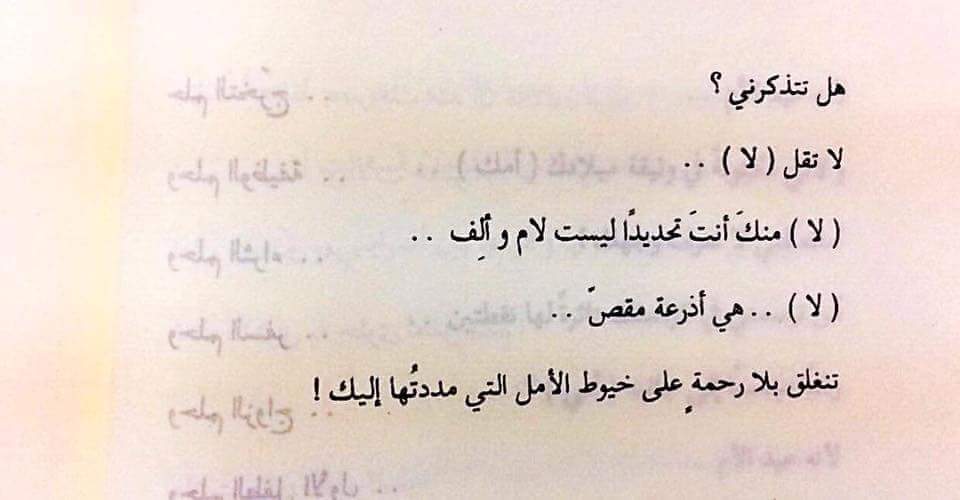 هل تتذكرني ؟
لا تقل ( لا ) ..
( لا ) منكَ أنتَ تحديدًا ليست لام و ألِف ..
( لا ) .. هي أذرعة مقصّ ..
تنغلق بلا رحمةٍ على خيوط الأمل التي مددتُها إليك !